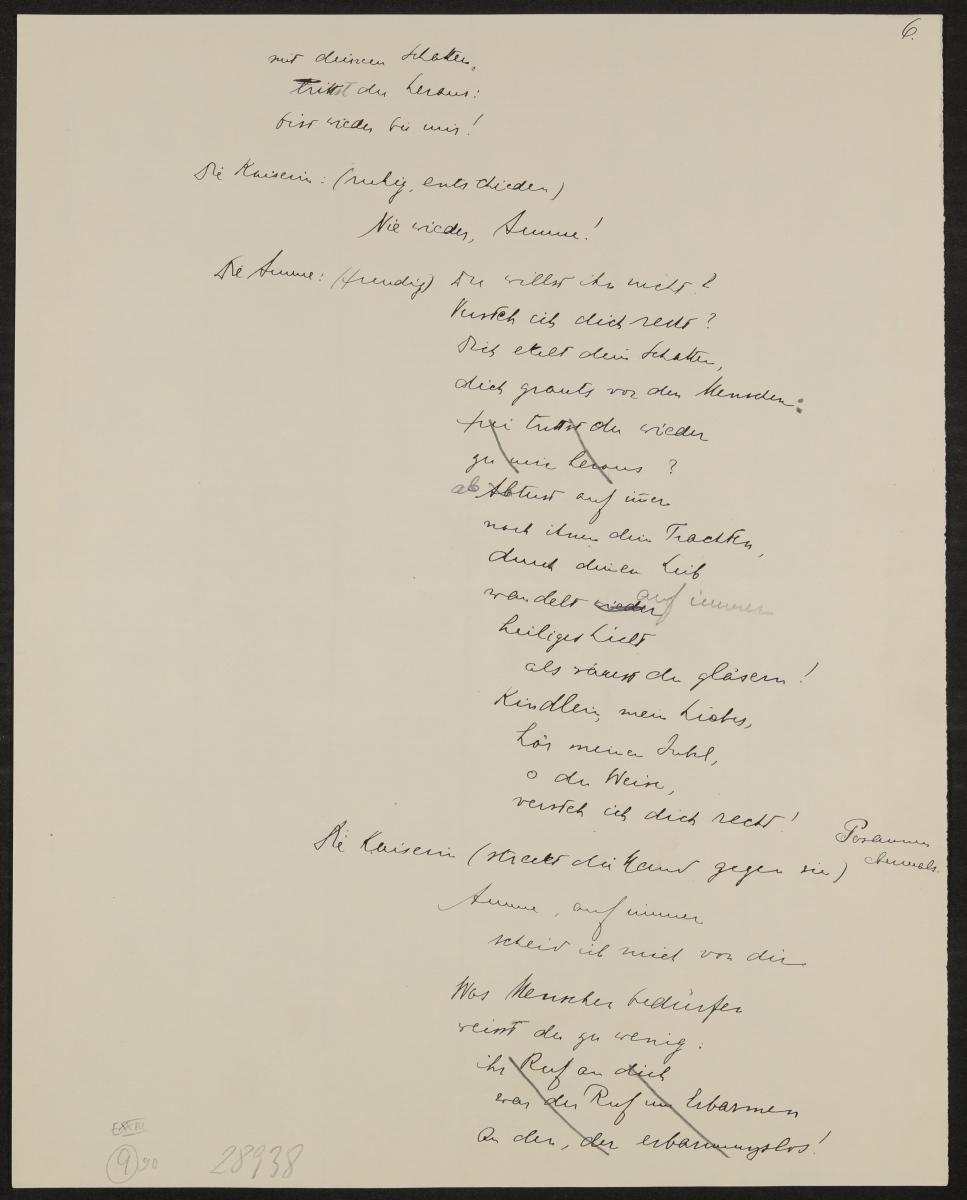 6.
mit deinem Schatten,
trittst du heraus:
bist wieder bei mir!
Die Kaiserin: (ruhig, entschieden)
Nie wieder, Amme!
Die Amme: (freudig) Du willst ihn nicht?
Versteh ich dich recht?
Dich ekelt dein Schatten,
dich grauts vor den Menschen:
frei trittst du wieder
zu mir heraus?
ab Abtust auf im̄er
nach ihnen dein Trachten,
durch deinen Leib
wandelt wieder auf immer
heiliges Licht
als wärest du gläsern!
Kindlein, mein Liebes,
hör meinen Jubel,
o du Weise,
versteh ich dich recht!
Posaunen
abermals.
Die Kaiserin (streckt die Hand gegen sie)
Amme, auf immer
scheid ich mich von dir
Was Menschen bedürfen
weisst du zu wenig:
ihr Ruf an dich
war der Ruf um Erbarmen
an den, der erbarmungslos!
9 90
28938